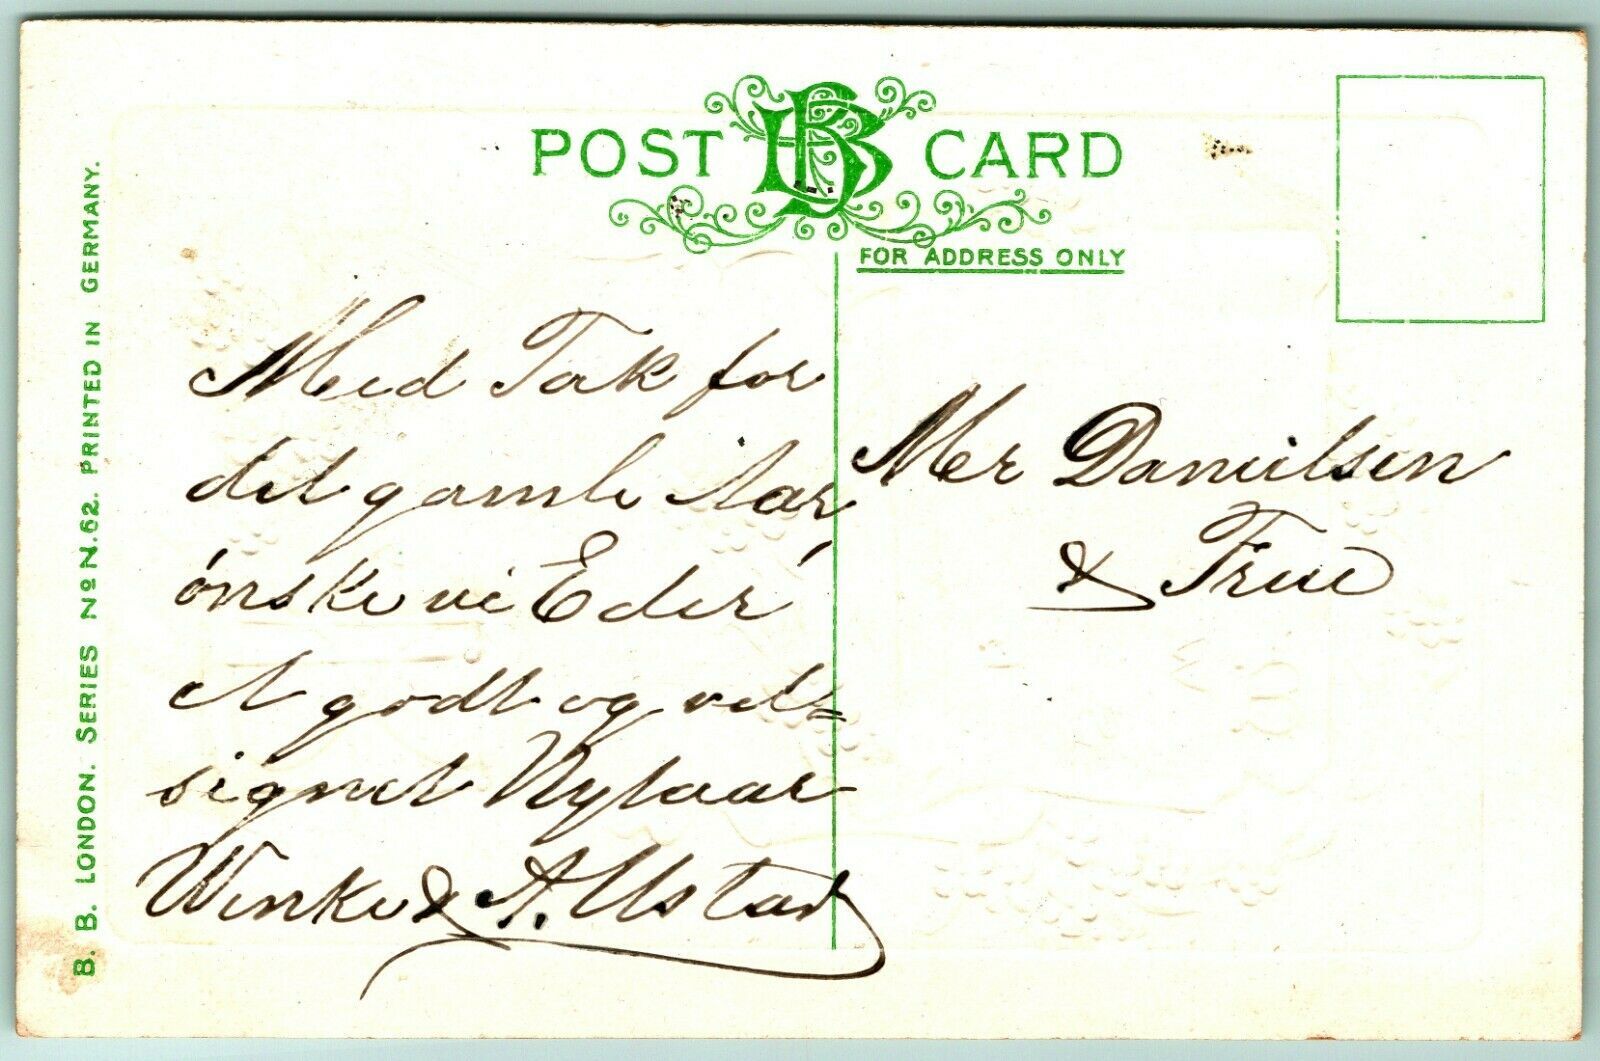 POST CARD
FOR ADDRESS ONLY
B. B. LONDON. SERIES No N.62. PRINTED IN GERMANY.
Med Tak for
det gamle Aar
ónske vi Eder
et godt og vel=
signet Nytaar
& A.
Mr Danielsen
& Frue